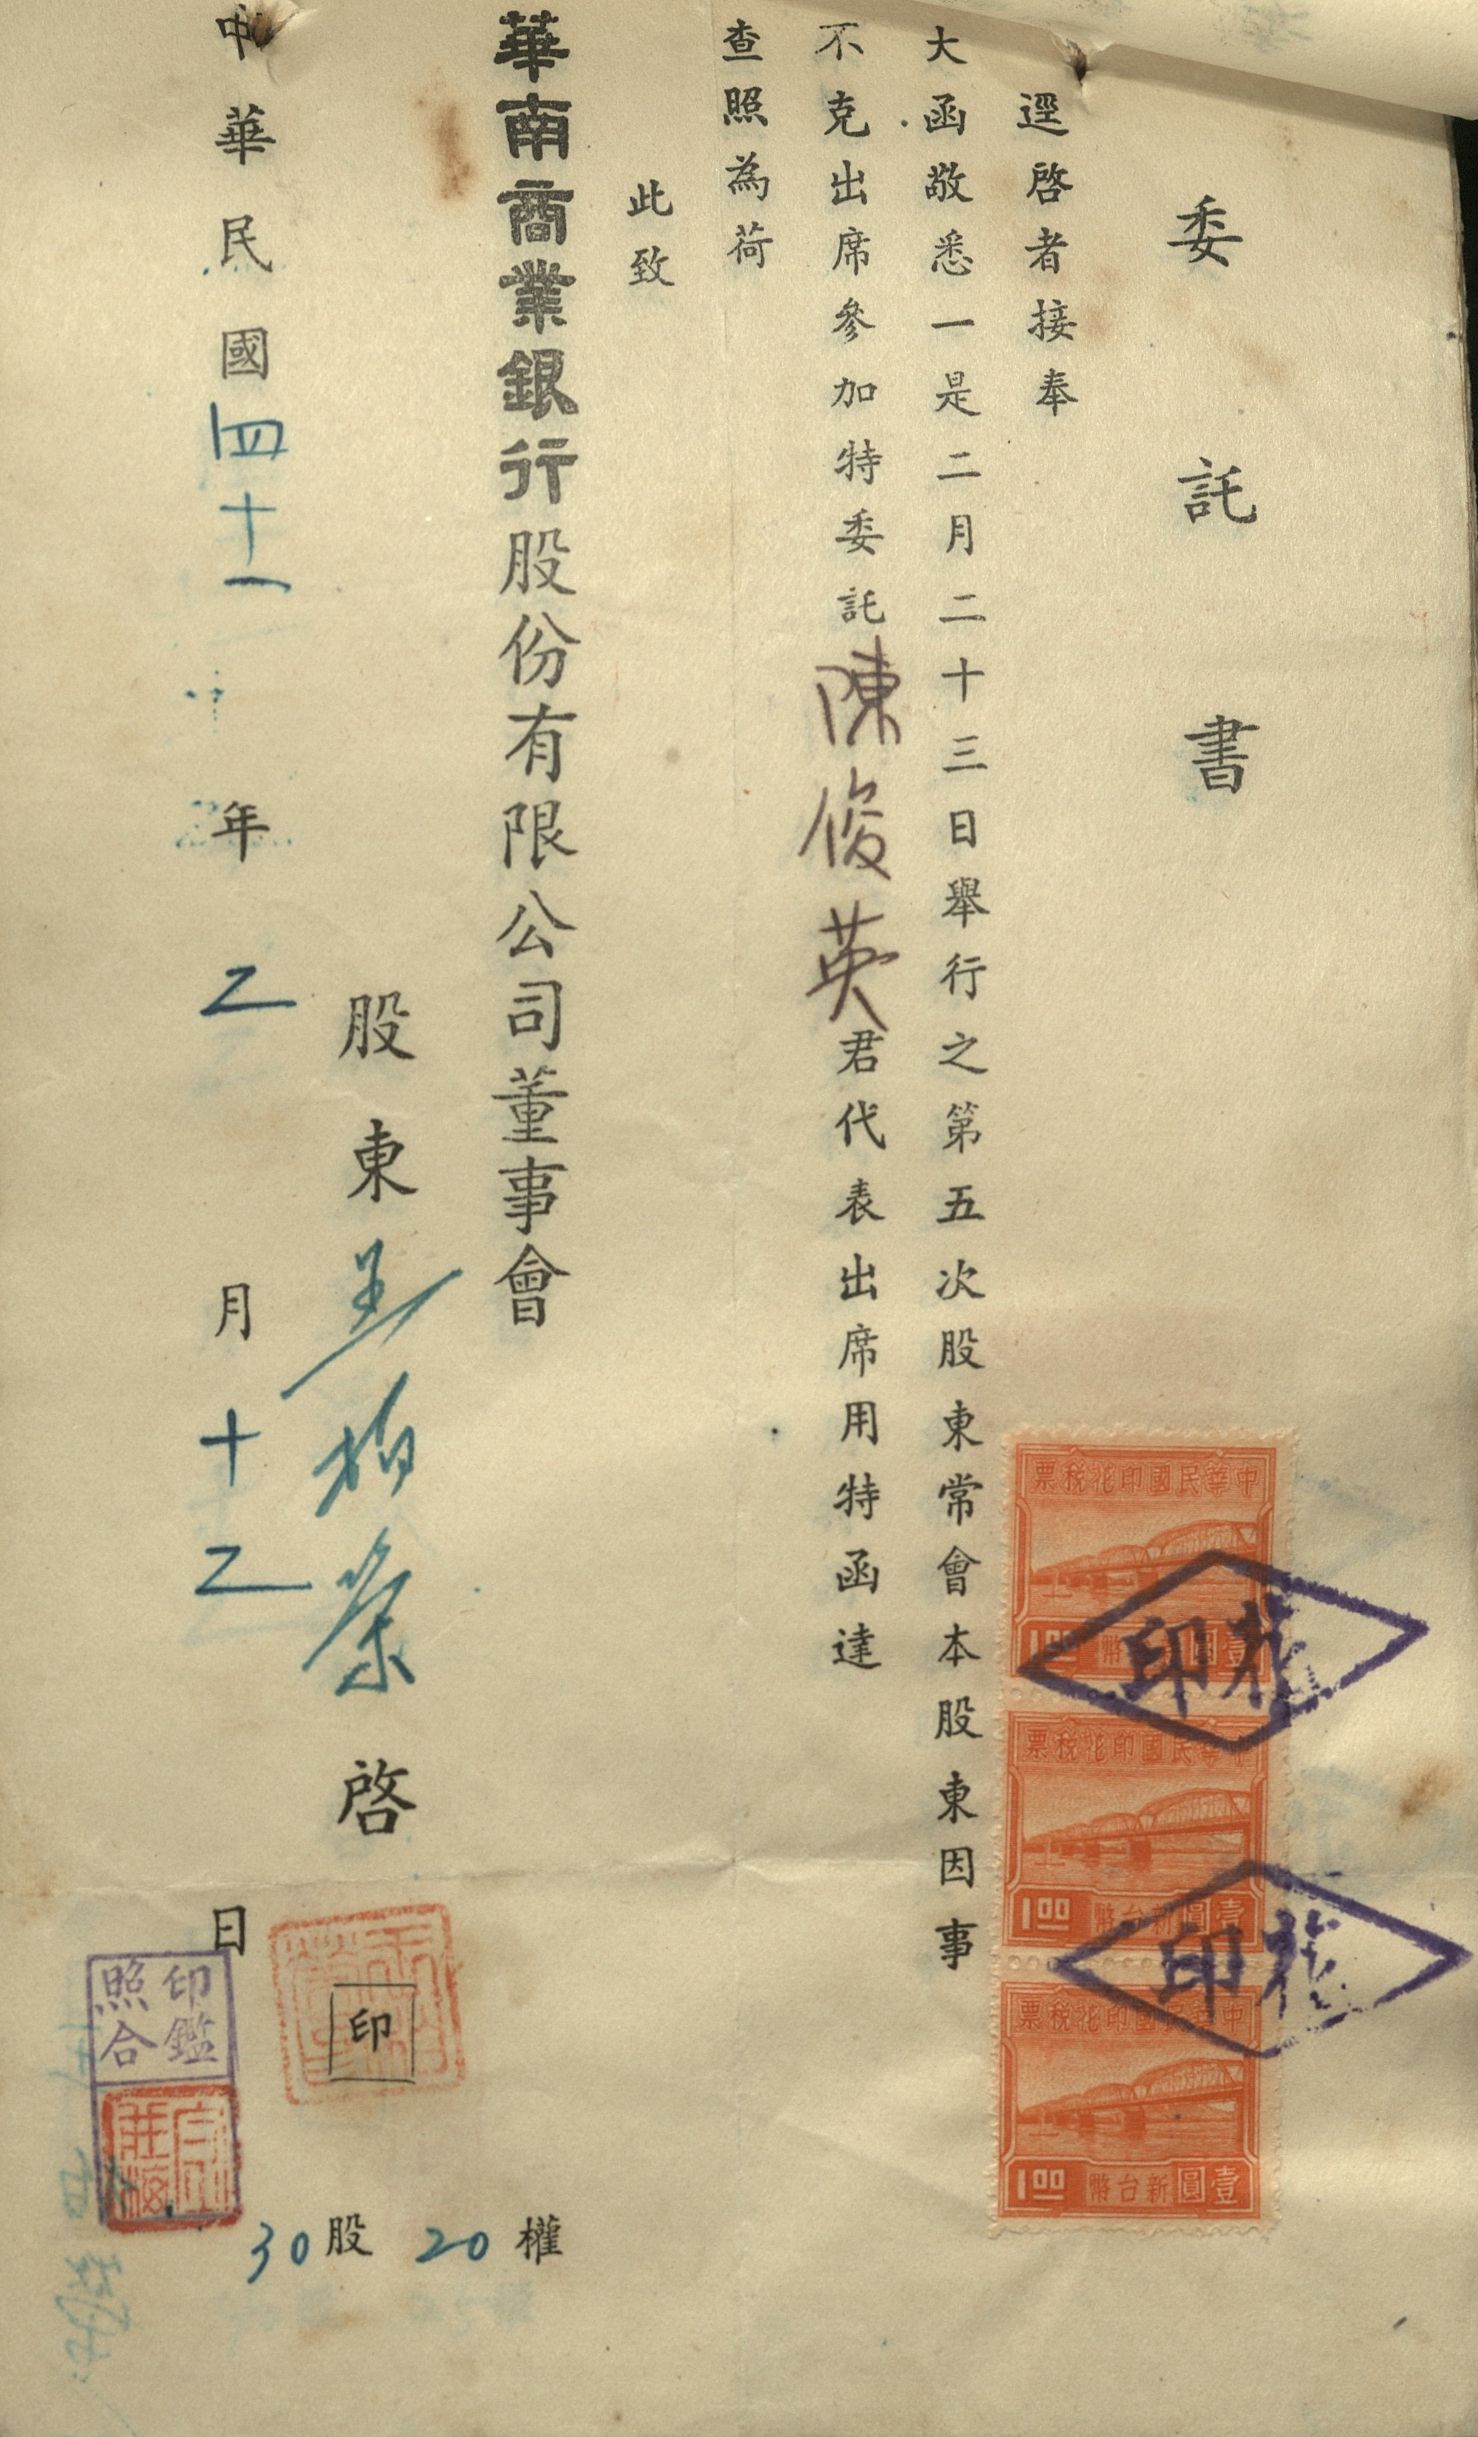 委託書
逕啓者接奉
大函敬悉一是二月二十三日舉行之第五次股東常會本股東因事
不克出席參加特委託陳俊英君代表出席用特函達
查照為荷
此致
華南商業銀行股份有限公司董事會
股東王柏榮啓
印
中華民國四十一年二月十二日
30股20權
印鑑
照合
中華民國印花稅票
1.00 新台幣壹圓
印花
中華民國印花稅票
1.00 新台幣壹圓
印花
中華民國印花稅票
1.00 新台幣壹圓